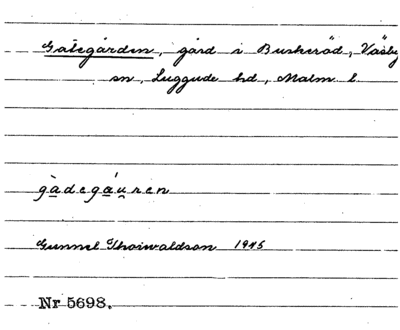 Gategården, gård i Buskeröd, Väsby
sn, Luggude hd, Malm. l.
gàdegáu̯ren
Gunnel Thorwaldson 1945
Nr 5698.